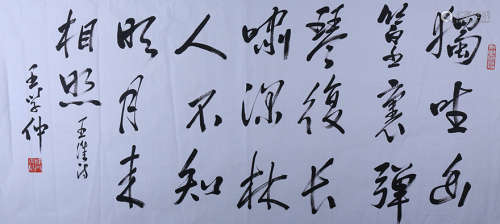 獨坐幽
篁裏彈
琴復長
嘯深林
人不知
明月来
相照
王维诗
王学仲